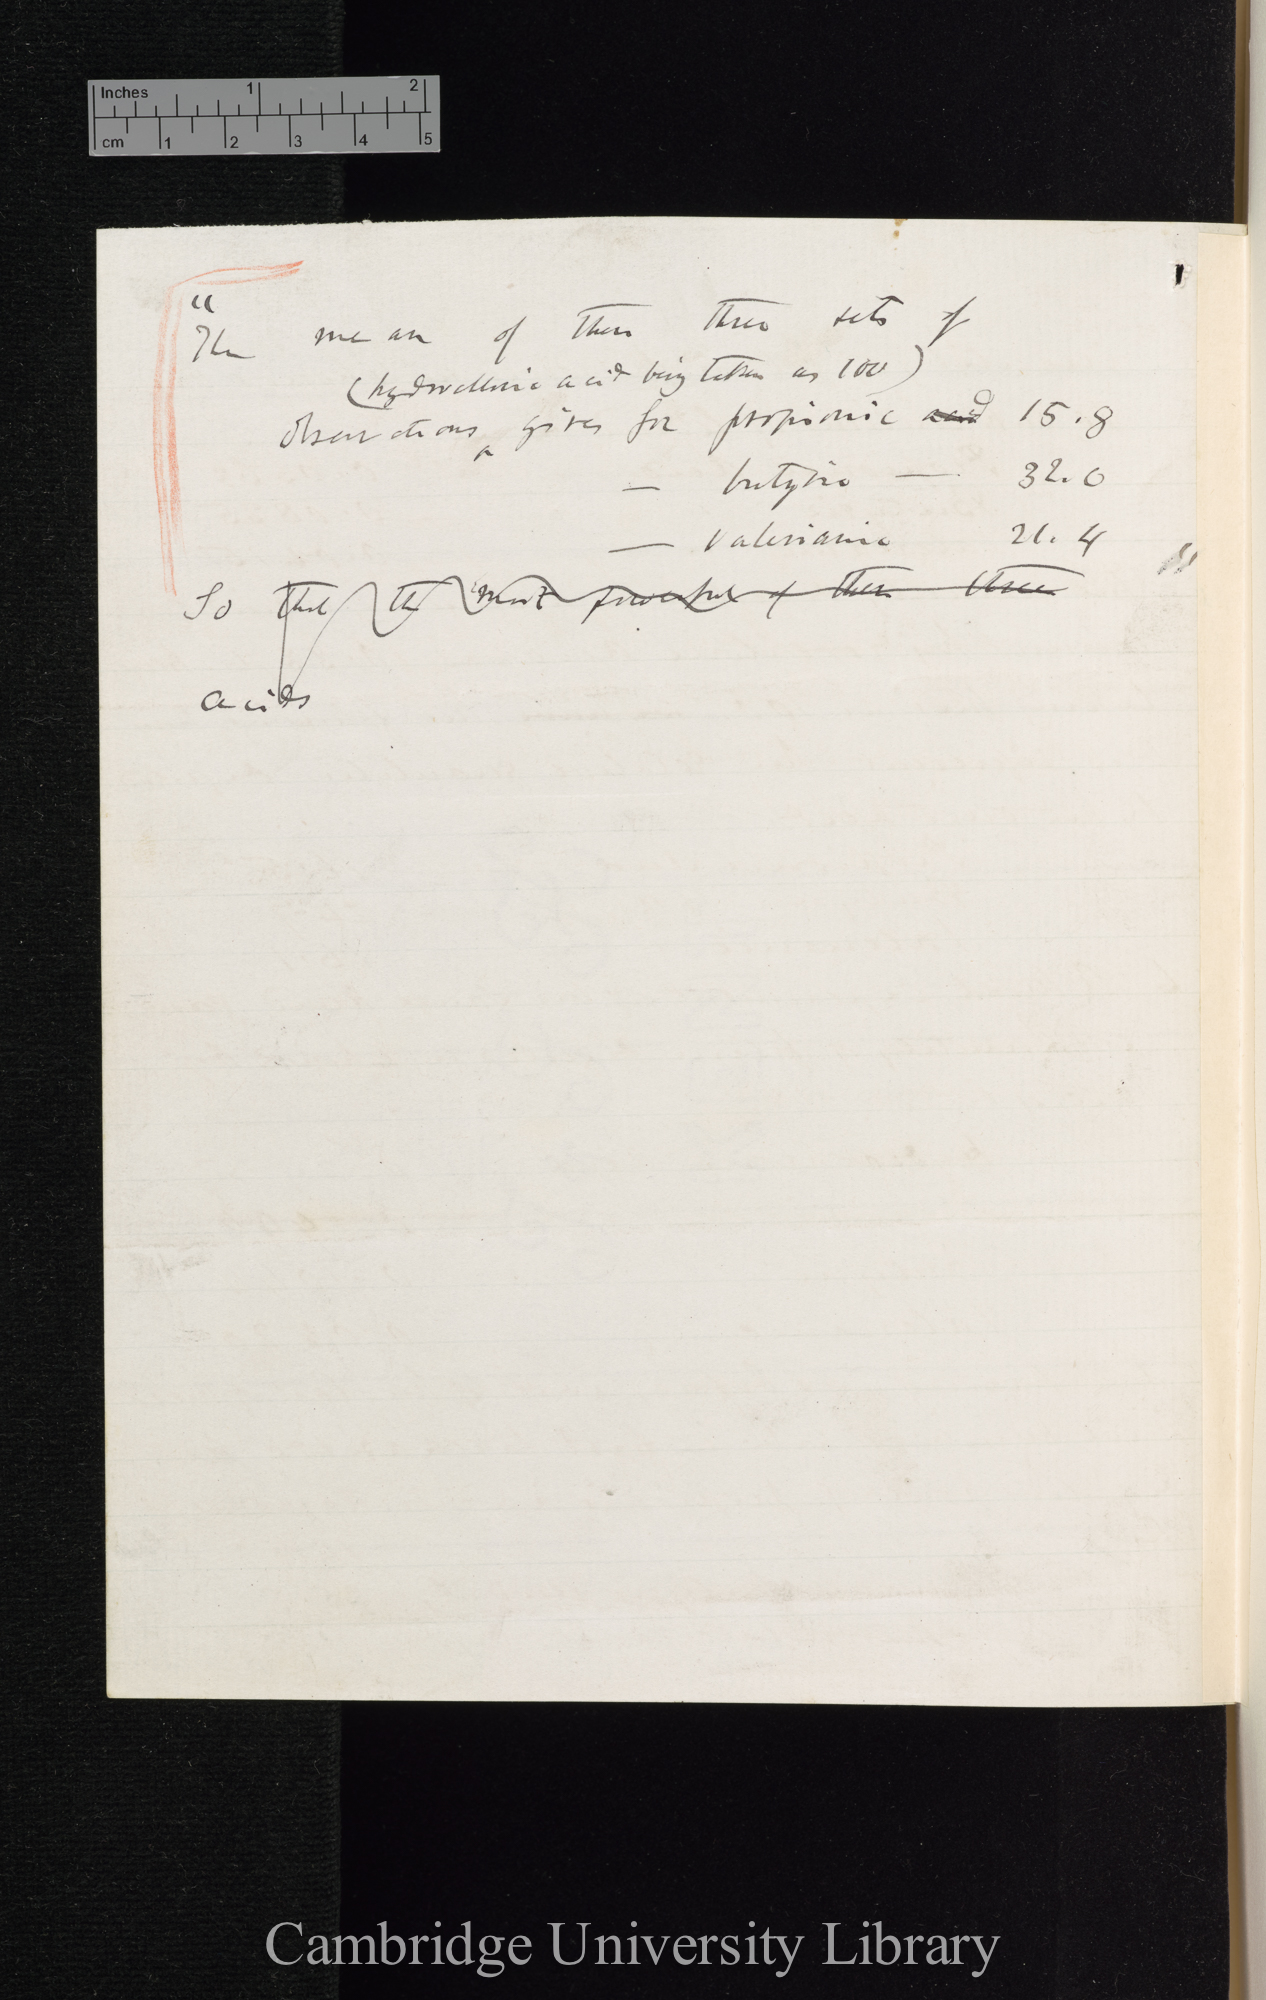 Inches 1 2
cm 1 2 3 4 5
"
The mean of these three sets of
(hydrochloric acid being taken as 100)
Observations gives for propionic acid 15.8
— butyric — 32.0
— valerianic 21.4
So that the most powerful of these three
acids
"
Cambridge University Library